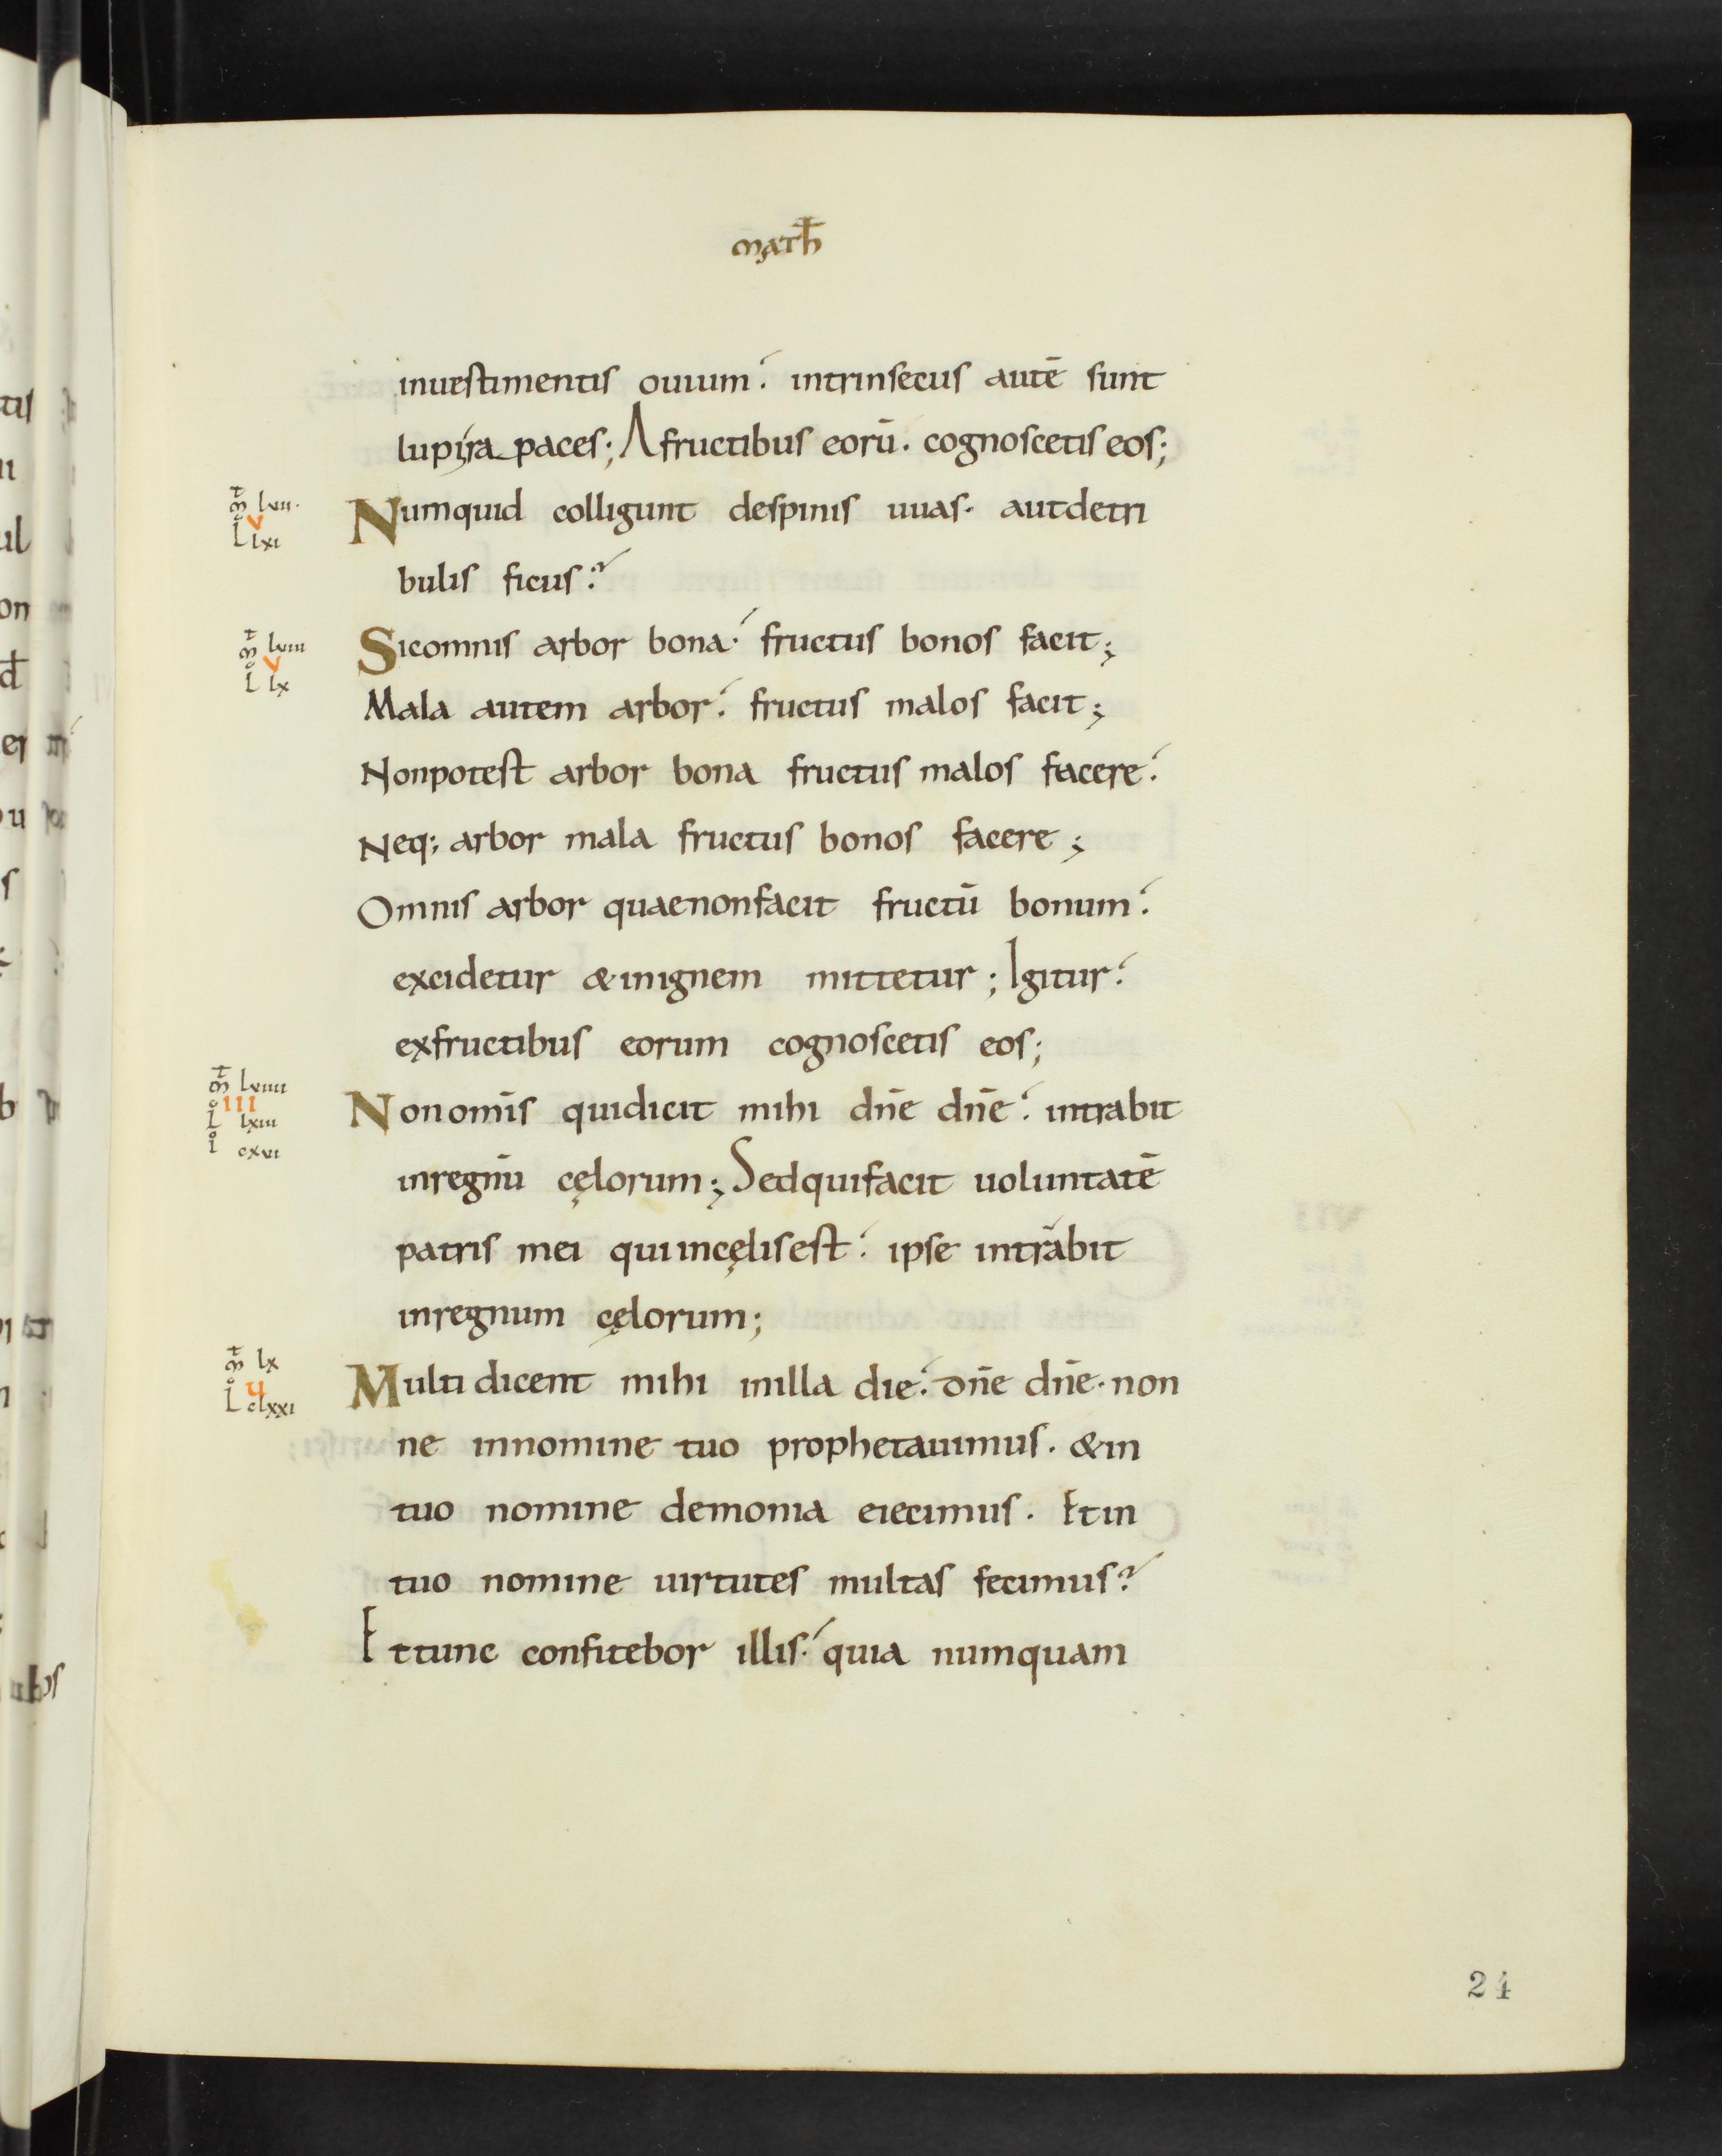 math̄
inuestimentis ouium. intrinsecus autē sunt
lupi rapaces; A fructibus eorū. cognoscetis eos;
m̄t lvii.
lō v
lxi
Numquid colligunt despinis uuas. autdetri
bulis ficus?
m̄t lviii
lō v
lx
Sicomnis arbor bona. fructus bonos facit;
Mala autem arbor. fructus malos facit;
Nonpotest arbor bona fructus malos facere.
Neq; arbor mala fructus bonos facere;
Omnis arbor quaenonfacit fructū bonum.
excidetur &inignem mittetur; Igitur.
exfructibus eorum cognoscetis eos;
m̄t lviiii
III
lō lxiii
iō cxvi
Nonomīs quidicit mihi dn̄e dn̄e. intrabit
inregnū cęlorum; Sedquifacit uoluntatē
patris mei quiincęlisest. ipse intrabit
inregnum cęlorum;
m̄t lx
u
lō clxxi
Multi dicent mihi inilla die. dn̄e dn̄e. non
ne innomine tuo prophetauimus. &in
tuo nomine demonia eiecimus. Etin
tuo nomine uirtutes multas fecimus?
Et tunc confitebor illis. quia numquam
24